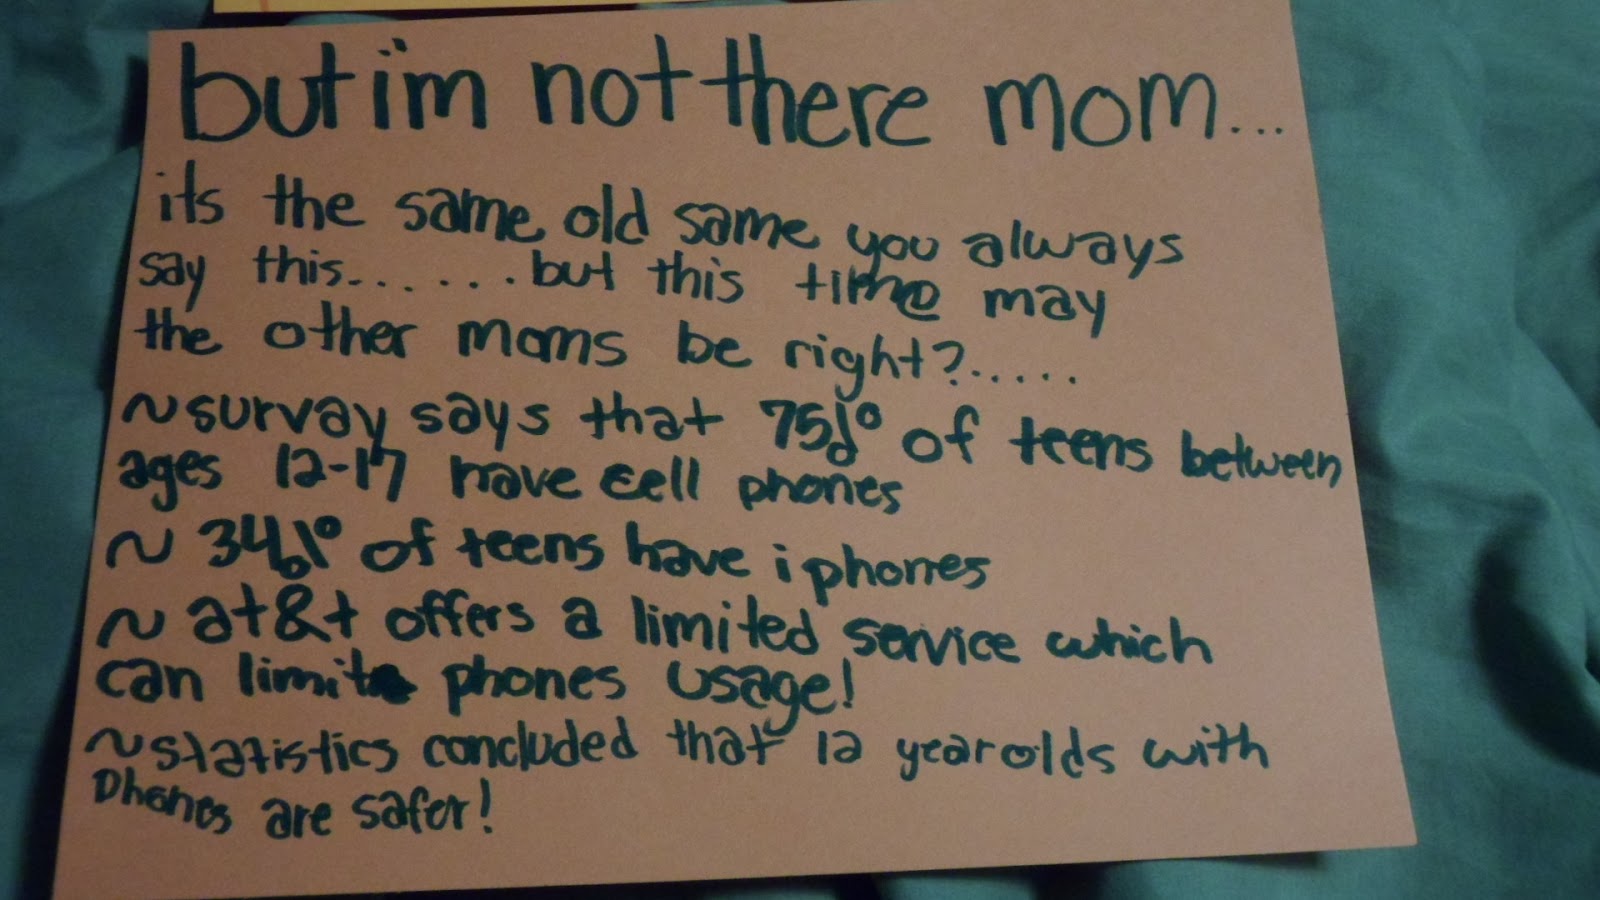 but i'm not there mom...
its the same old same you always
say this.......but this time may
the other moms be right?.....
~survay says that 75% of teens between
ages 12-17 have cell phones
~ 34% of teens have iphones
~ at&t offers a limited service which
can limit phones usage!
~statistics concluded that 12 year olds with
Phones are safer!